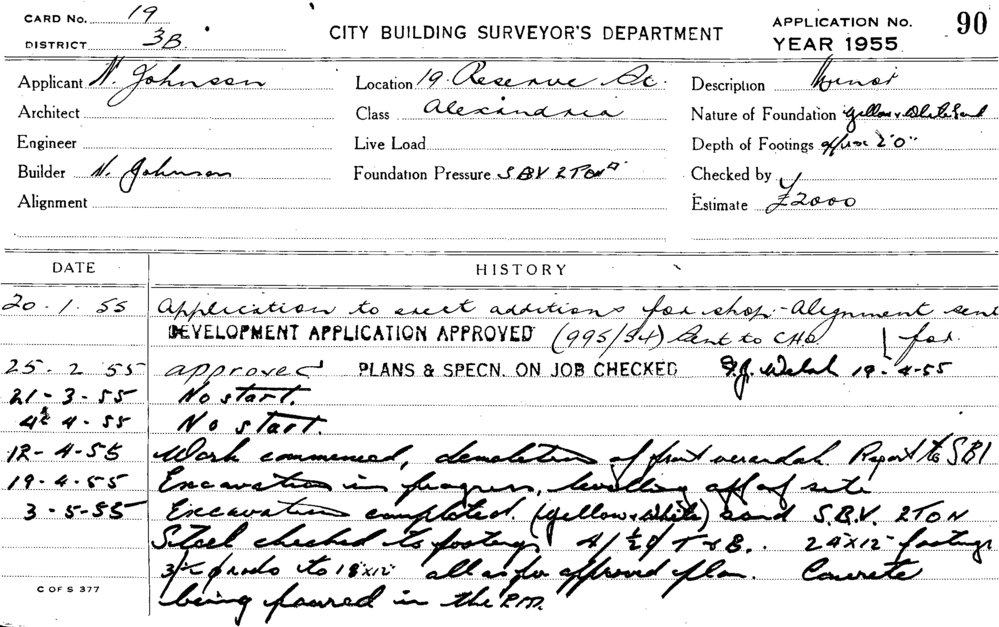 CARD No. 19
DISTRICT 3B
CITY BUILDING SURVEYOR'S DEPARTMENT
APPLICATION No. 90
YEAR 1955
Applicant N. Johnson
Location 19 Reserve St.
Description Minor
Architect
Class Alexandria
Nature of Foundation Yellow & White Sand
Engineer
Live Load
Depth of Footings 2'0"
Builder N. Johnson
Foundation Pressure S.B.V. 2 TON
Checked by
Alignment
Estimate £2000
DATE HISTORY
20.1.55 Application to erect additions for shop - Alignment sent
DEVELOPMENT APPLICATION APPROVED (995/54) Sent to CHO for
25.2.55 approved PLANS & SPECN. ON JOB CHECKED G.J. Welsh 19-4-55
21-3-55 No start.
4-4-55 No start.
12-4-55 Work commenced, demolition of front verandah. Report to SBI
19.4.55 Excavation in progress, levelling off of site
3-5-55 Excavation completed. (yellow & white) sand S.B.V. 2 TON
Steel checked to footings 4/½ T & B. 24"x12" footings
to 18"x12" all as for approved plan. Concrete
C OF S 377
being poured in the P.M.